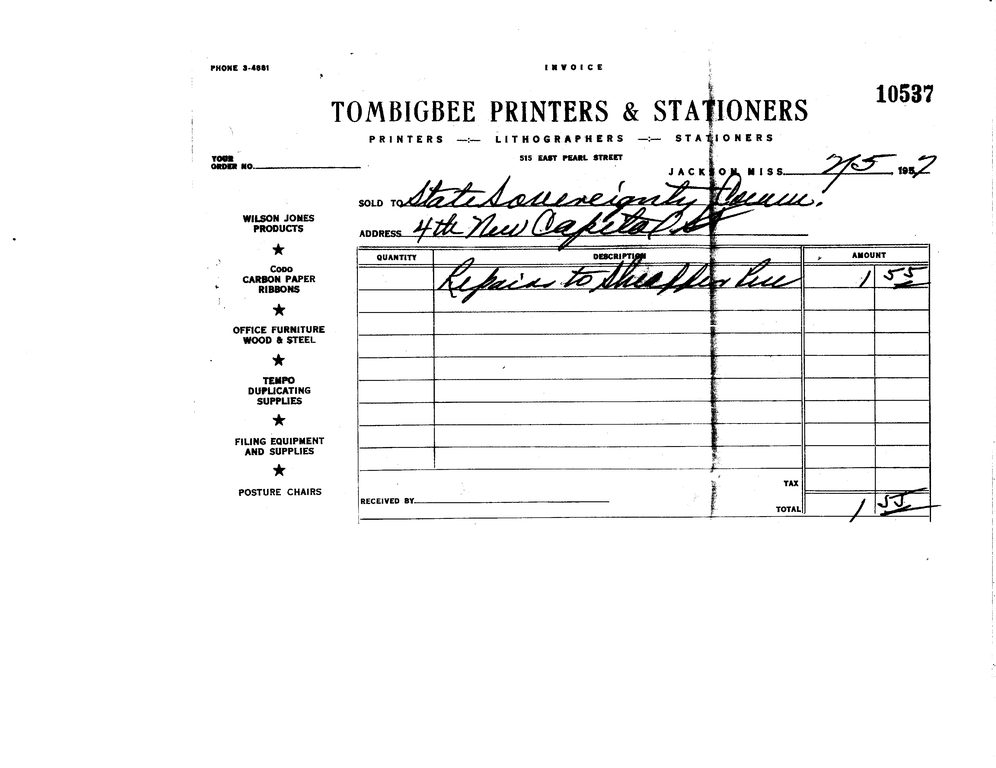 PHONE 3-4681
INVOICE
10537
TOMBIGBEE PRINTERS & STATIONERS
PRINTERS —:— LITHOGRAPHERS —:— STATIONERS
515 EAST PEARL STREET
YOUR
ORDER NO.
JACKSON, MISS. 2/5 1957
SOLD TO State Sovereignty Comm.
ADDRESS 4th New Capitol
WILSON JONES
PRODUCTS
★
CODO
CARBON PAPER
RIBBONS
★
OFFICE FURNITURE
WOOD & STEEL
★
TEMPO
DUPLICATING
SUPPLIES
★
FILING EQUIPMENT
AND SUPPLIES
★
POSTURE CHAIRS
QUANTITY DESCRIPTION AMOUNT
Repairs to Sheaffer Pen 1 55
TAX
RECEIVED BY
TOTAL 1 55